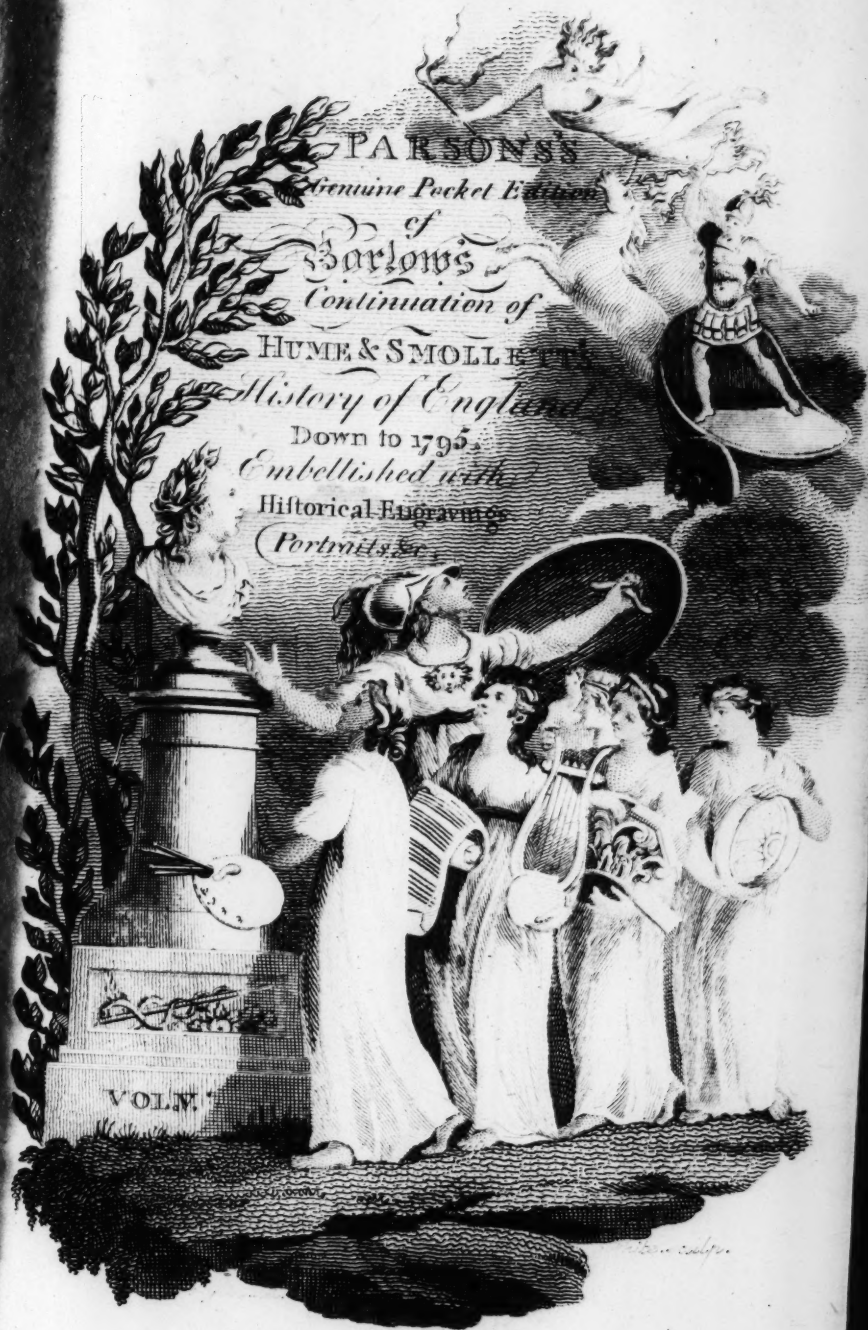 PARSONS'S
Genuine Pocket Edition
of
Barlow's
Continuation of
HUME & SMOLLETT'S
History of England
Down to 1795.
Embellished with
Hiſtorical Engravings
Portraits &c.
VOL. V.